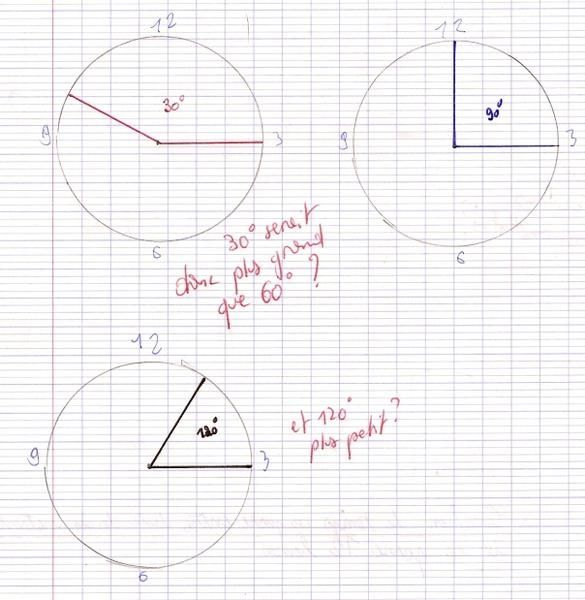 12
30°
9
3
6
12
90°
9
3
6
30° serait
donc plus grand
que 60° ?
12
120°
9
3
6
et 120°
plus petit ?